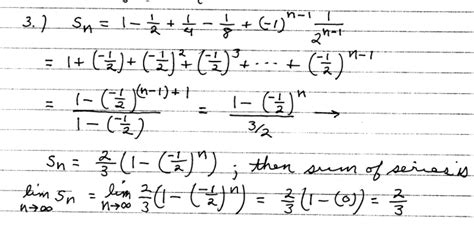 3.) Sₙ = 1 - 1/2 + 1/4 - 1/8 + (-1)ⁿ⁻¹ 1/2ⁿ⁻¹
= 1 + (-1/2) + (-1/2)² + (-1/2)³ + ··· + (-1/2)ⁿ⁻¹
= (1 - (-1/2)⁽ⁿ⁻¹⁾⁺¹)/(1 - (-1/2)) = (1 - (-1/2)ⁿ)/(3/2) →
Sₙ = 2/3 (1 - (-1/2)ⁿ) ; then sum of series is
lim n→∞ Sₙ = lim n→∞ 2/3 (1 - (-1/2)ⁿ) = 2/3 (1 - (0)) = 2/3